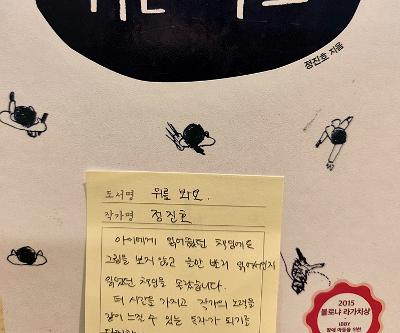 위를 봐요
정진호 지음
도서명 위를 봐요.
작가명 정진호
아이에게 읽어줬던 책임에도
그림을 보지 않고 글만 빨리 읽어서인지
읽었던 책임을 몰랐습니다.
더 시간을 가지고 작가의 노력을
같이 느낄 수 있는 독자가 되기를
2015
볼로냐 라가치상
IBBY
장애 아동을 위한